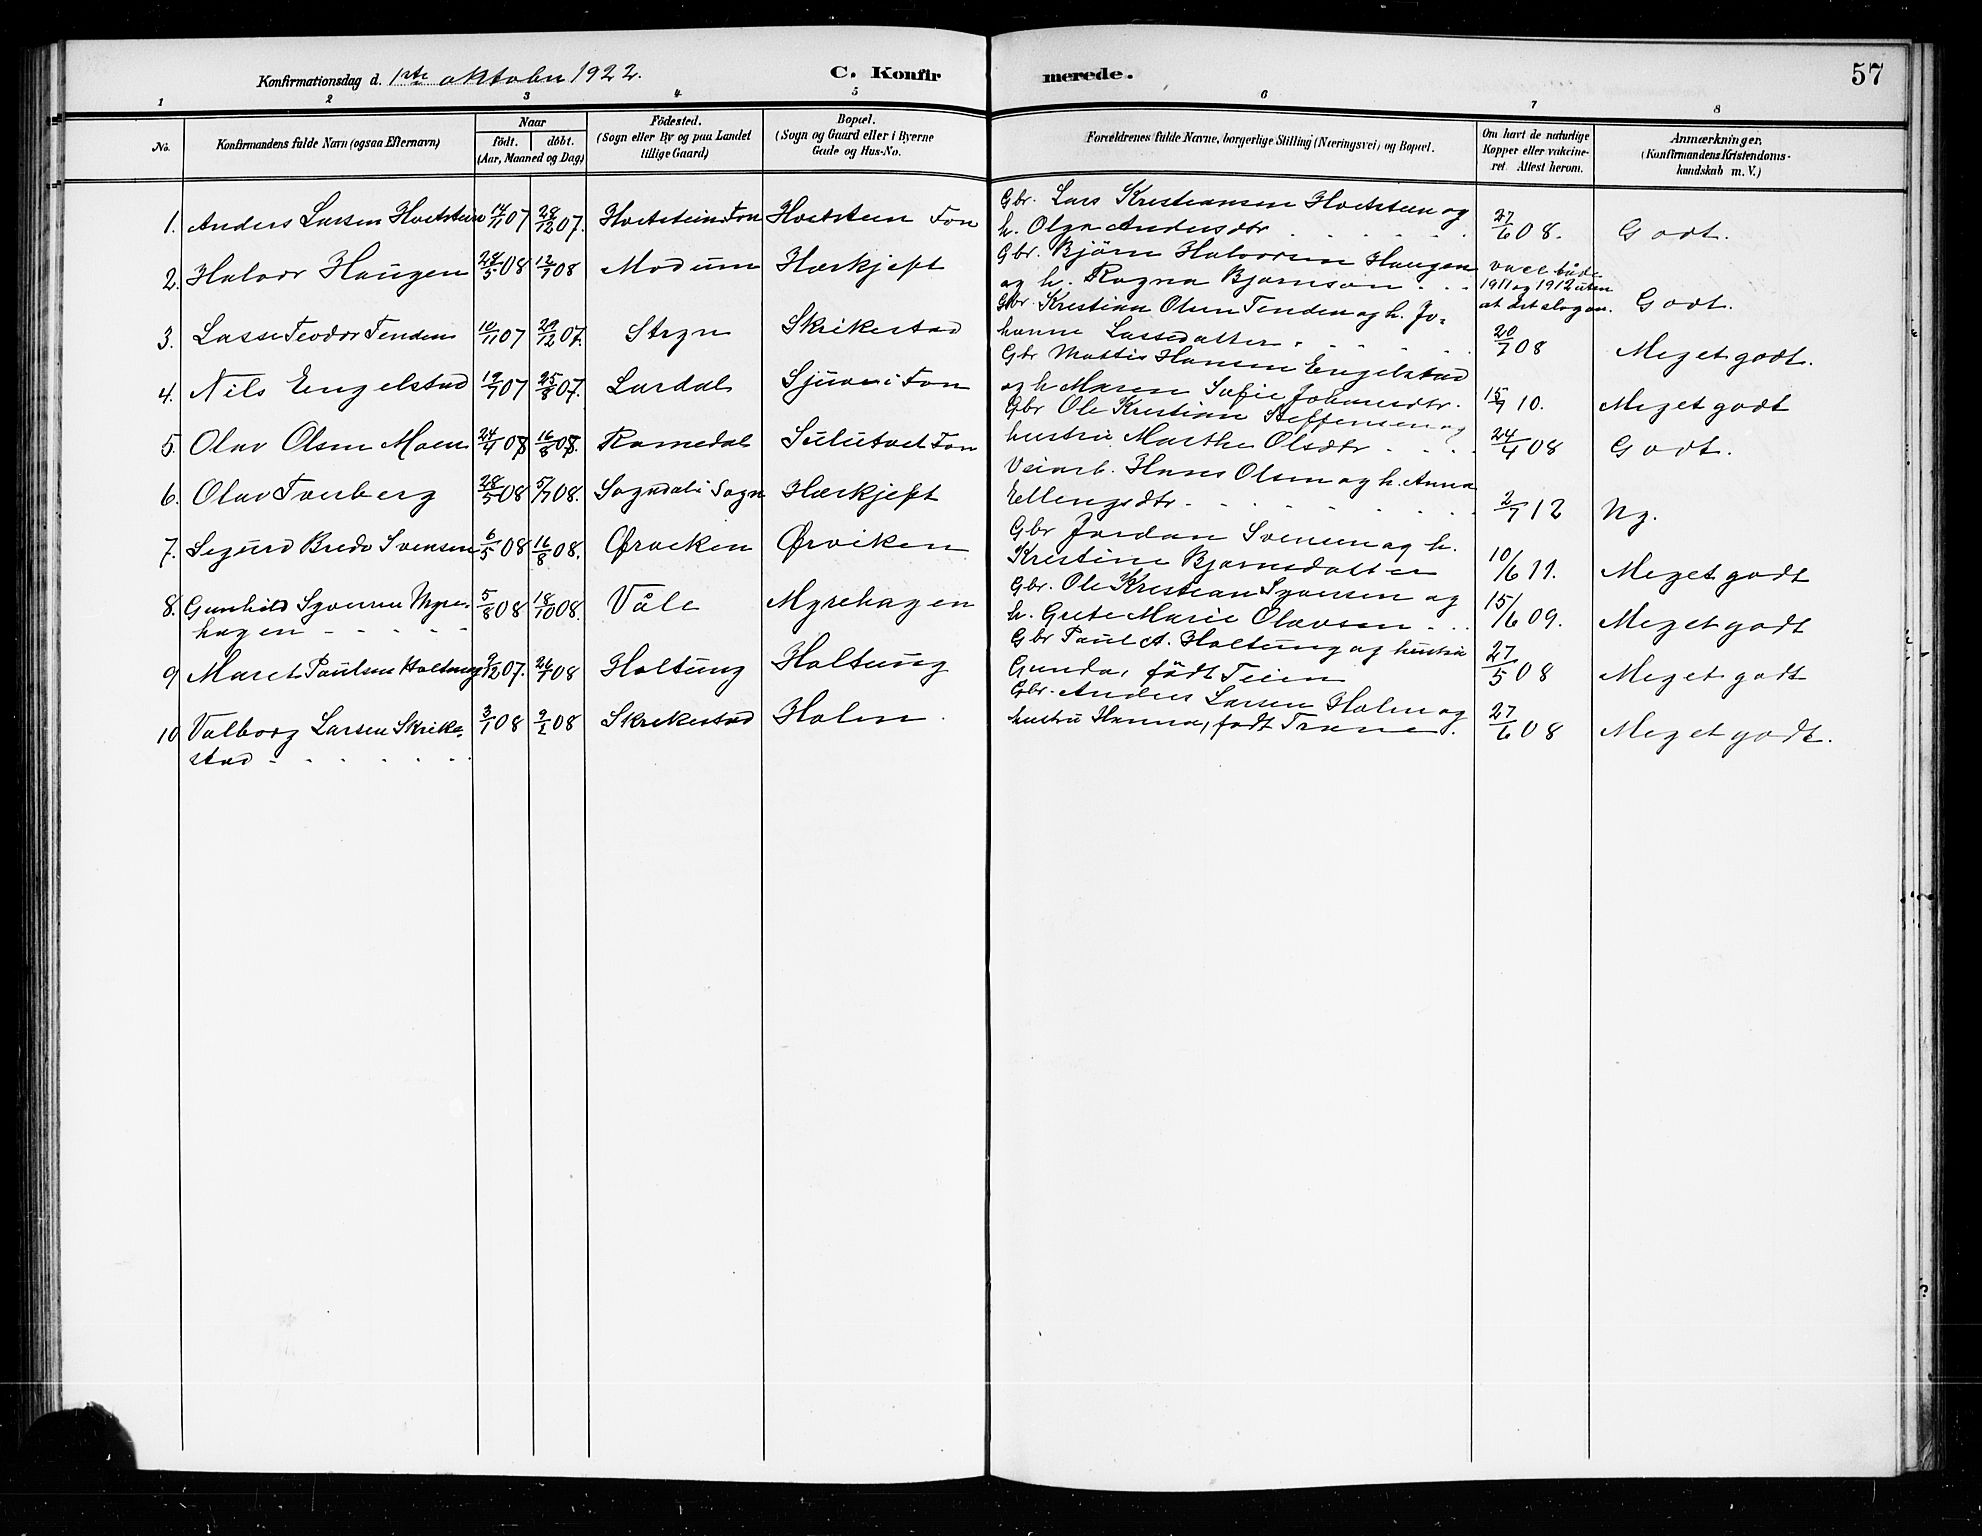 57
Konfirmationsdag d. 1ste oktober 1922.
C. Konfirmerede.
1 2 3 4 5 6 7 8
No.
Konfirmandens fulde Navn (ogsaa Efternavn)
Naar
født. døbt.
(Aar, Maaned og Dag)
Fødested.
(Sogn eller By og paa Landet
tillige Gaard)
Bopæl.
(Sogn og Gaard eller i Byerne
Gade og Hus-No.
Forældrenes fulde Navne, borgerlige Stilling (Næringsvei) og Bopæl.
Om havt de naturlige
Kopper eller vakcine-
ret. Attest herom.
Anmærkninger.
(Konfirmandens Kristendoms-
kundskab m. V.)
1. Anders Larsen Hvetstein 14/11 07 28/12 07. Hvetstein Fon Hvetstein Fon Gbr. Lars Kristiansen Hvetstein og
h. Olga Andersdtr 27/6 08. Godt.
2. Halvor Haugen 24/5 08 12/7 08 Modum Hærkjeft Gbr. Bjørn Halvorsen Haugen
og h. Ragna Bjørnson vacc. både
1911 og 1912 uten
at det slog an. Godt.
3. Lasse Teodor Tenden 10/11 07 29/12 07. Stryn Skrikestad Gbr. Kristian Olsen Tenden og h. Jo-
hanne Lassedatter 20/7 08 Meget godt.
4. Nils Engelstad 19/7 07 25/8 07. Lardal Sjue i Fon Gbr Mattis Hansen Engelstad
og h Maren Sofie Johansdtr. 15/7 10. Meget godt
5. Olav Olsen Moen 24/4 08 16/8 08. Ramedal Sulutvet Fon Gbr Ole Kristian Steffensen og
hustru Marthe Olsdtr 24/4 08 Godt.
6. Olav Torberg 28/5 08 5/7 08. Sogndal i Sogn Hærkjeft Veiarb. Hans Olsen og h. Anna
Ellingsdtr. 2/7 12 Ng.
7. Sigurd Bredo Svensen 6/5 08 16/8 08. Ørviken Ørviken Gbr Jordan Svensen og h.
Kristine Bjørnsdatter 10/6 11. Meget godt
8. Gunhild Syversen Myre-
hagen 5/8 08 18/10 08. Våle Myrehagen Gbr. Ole Kristian Syversen og
h. Grete Marie Olavsen 15/6 09. Meget godt
9 Maret Paulsen Holtung 9/12 07. 26/1 08 Holtung Holtung Gbr Paul A. Holtung og hustru
Gunda, født Teien 27/5 08 Meget godt
10 Valborg Larsen Skrike-
stad 3/1 08 9/2 08 Skrikestad Holm. Gbr. Anders Larsen Holm og
hustru Hanna, født Trane. 27/6 08 Meget godt.